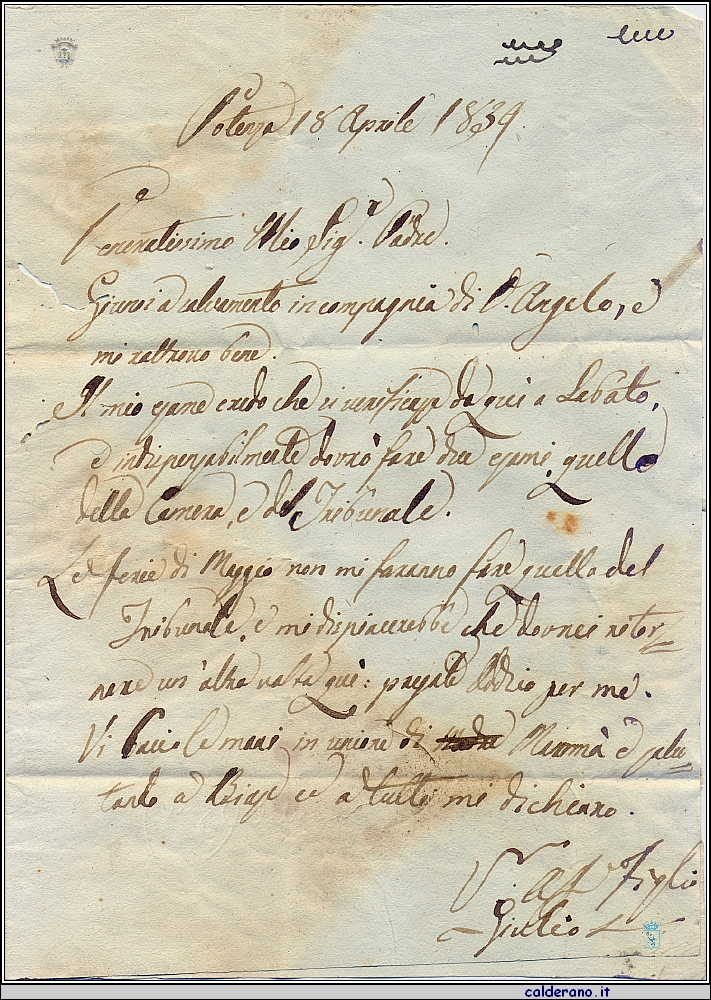 Potenza 18 Aprile 1839.
Veneratissimo Mio Sig.r Padre.
Giunsi a salvamento in compagnia di D. Angelo, e
mi ritrovo bene.
Il mio esame credo che si verificasse da quì a Sabato,
e indispensabilmente dovrò fare due esami, quello
della Camera, e del Tribunale.
Le ferie di Maggio non mi faranno fare quello del
Tribunale, e mi dispiacerebbe che dovrei ritor=
nare un'altra volta quì: pregate Iddio per me.
Vi bacio le mani in unione di Mammà e salu=
tando a Biase ed a tutti mi dichiaro.
V. Aff.o Figlio
Giulio
calderano.it